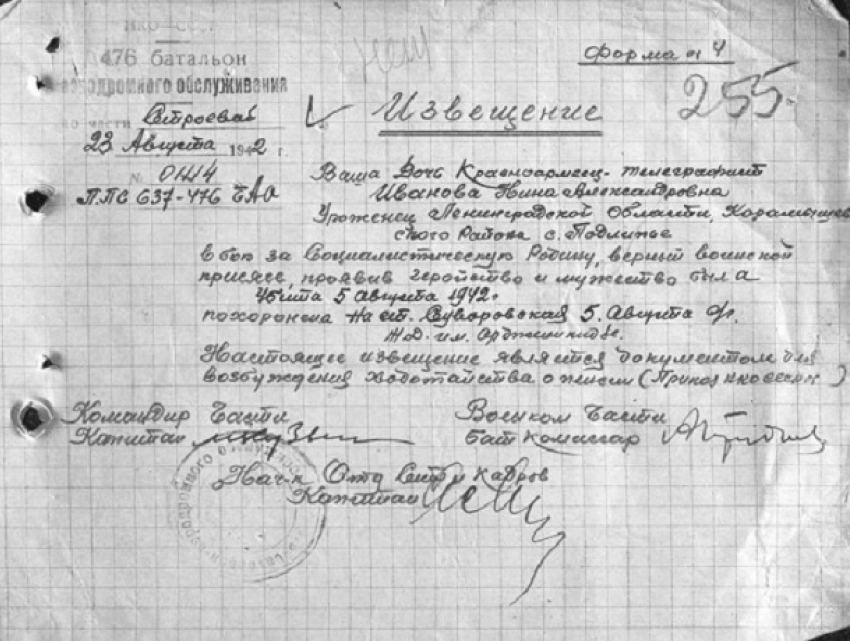 НКО СССР
476 батальон
аэродромного обслуживания
по части Строевая
23 Августа 1942 г.
№ 0144
ППС 637-476 БАО
Форма № 4
255
Извещение
Ваша Дочь Красноармеец-телеграфист
Иванова Нина Александровна
Уроженец Ленинградской Области, Карамышев
ского Района с.
в бою за Социалистическую Родину, верный воинской
присяге, проявив геройство и мужество была
убита 5 августа 1942г
похоронена на ст. Суворовская 5. Августа
Ж.Д. им. Орджоникидзе.
Настоящее извещение является документом для
возбуждения ходотайства о пенсии (Приказ НКО СССР № )
Командир Части
Капитан
Военком Части
Бат Комиссар
Нач-к Отд Кадров
Капитан